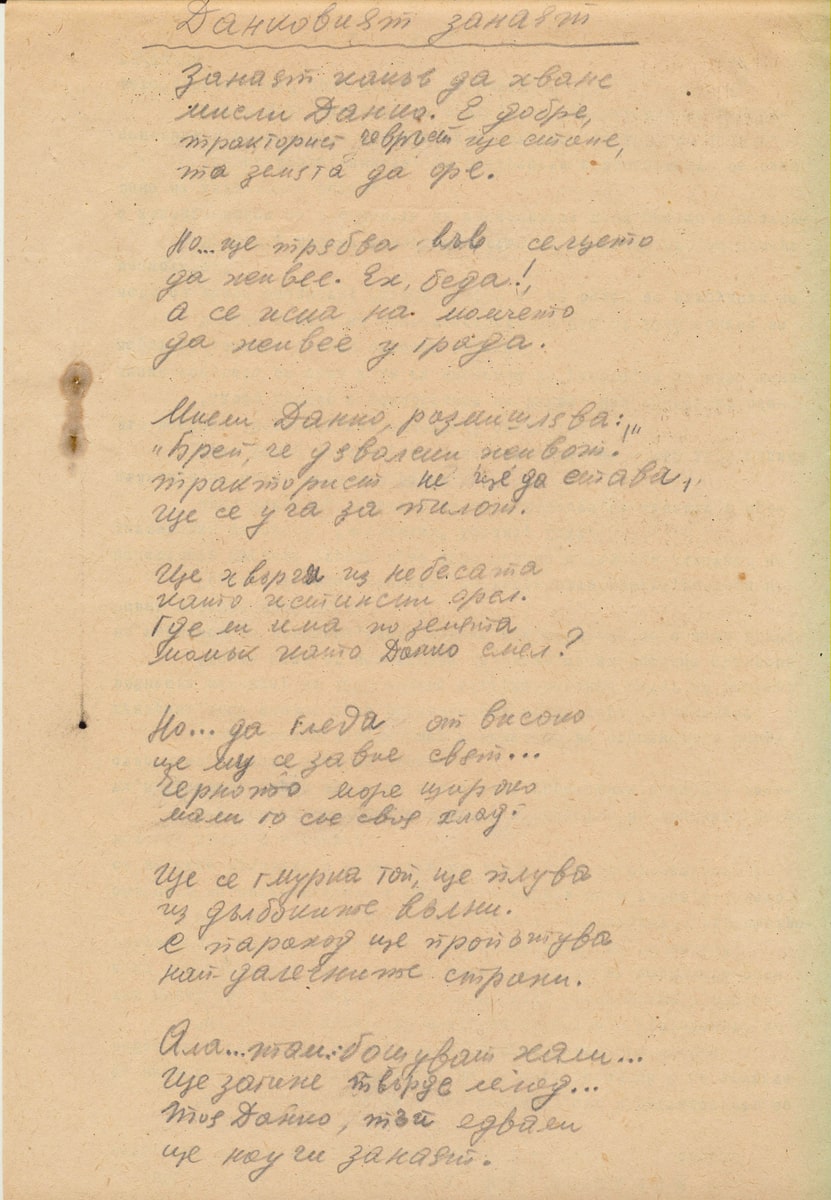 Данковият занаят
Занаят какъв да хване
мисли Данко. Е добре,
тракторист чевръст ще стане,
та земята да оре.
Но... ще трябва във селцето
да живее. Ех, беда!,
а се иска на момчето
да живее у града.
Мисли Данко, размишлява:,,
"Брей, че дяволски живот."
тракторист не ще да става,
ще се уча за пилот.
Ще хвърча из небесата
като истински орел.
Где ли има по земята
момък като Данко смел?
Но... да гледа от високо
ще му се завие свят...
Черното море широко
мами го със своя хлад.
Ще се гмурка той, ще плува
из дълбоките вълни.
С параход ще пропътува
най-далечните страни.
Ала... там бошуват хали...
Ще загине твърде млад...
Тоя Данко, тъй едвали
ще научи занаят.